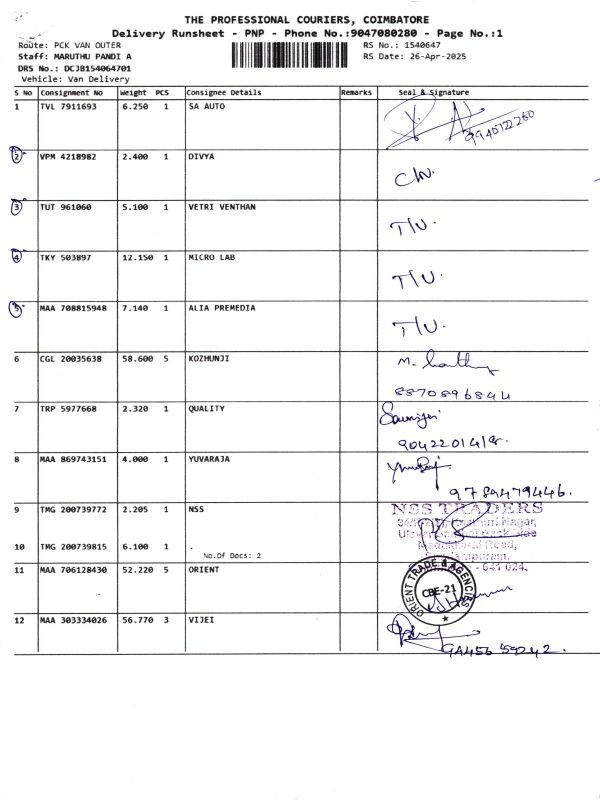 THE PROFESSIONAL COURIERS, COIMBATORE
Delivery Runsheet - PNP - Phone No.:9047080280 - Page No.:1
Route: PCK VAN OUTER
RS No.: 1540647
Staff: MARUTHU PANDI A
RS Date: 26-Apr-2025
DRS No.: DCJB154064701
Vehicle: Van Delivery
S No Consignment No Weight PCS Consignee Details Remarks Seal & Signature
1 TVL 7911693 6.250 1 SA AUTO
9940722260
2 VPM 4218982 2.400 1 DIVYA
C/N.
3 TUT 961060 5.100 1 VETRI VENTHAN
T/U.
4 TKY 503897 12.150 1 MICRO LAB
T/U.
5 MAA 708815948 7.140 1 ALIA PREMEDIA
T/U.
6 CGL 20035638 58.600 5 KOZHUNJI
8870896844
7 TRP 5977668 2.320 1 QUALITY
8 MAA 869743151 4.000 1 YUVARAJA
9789479446.
9 TMG 200739772 2.205 1 NSS
NSS TRADERS
Nagar,
Side
Road,
- 641 024.
10 TMG 200739815 6.100 1 .
No.Of Docs: 2
11 MAA 706128430 52.220 5 ORIENT
ORIENT TRADE & AGENCIES
CBE-21
12 MAA 303334026 56.770 3 VIJEI